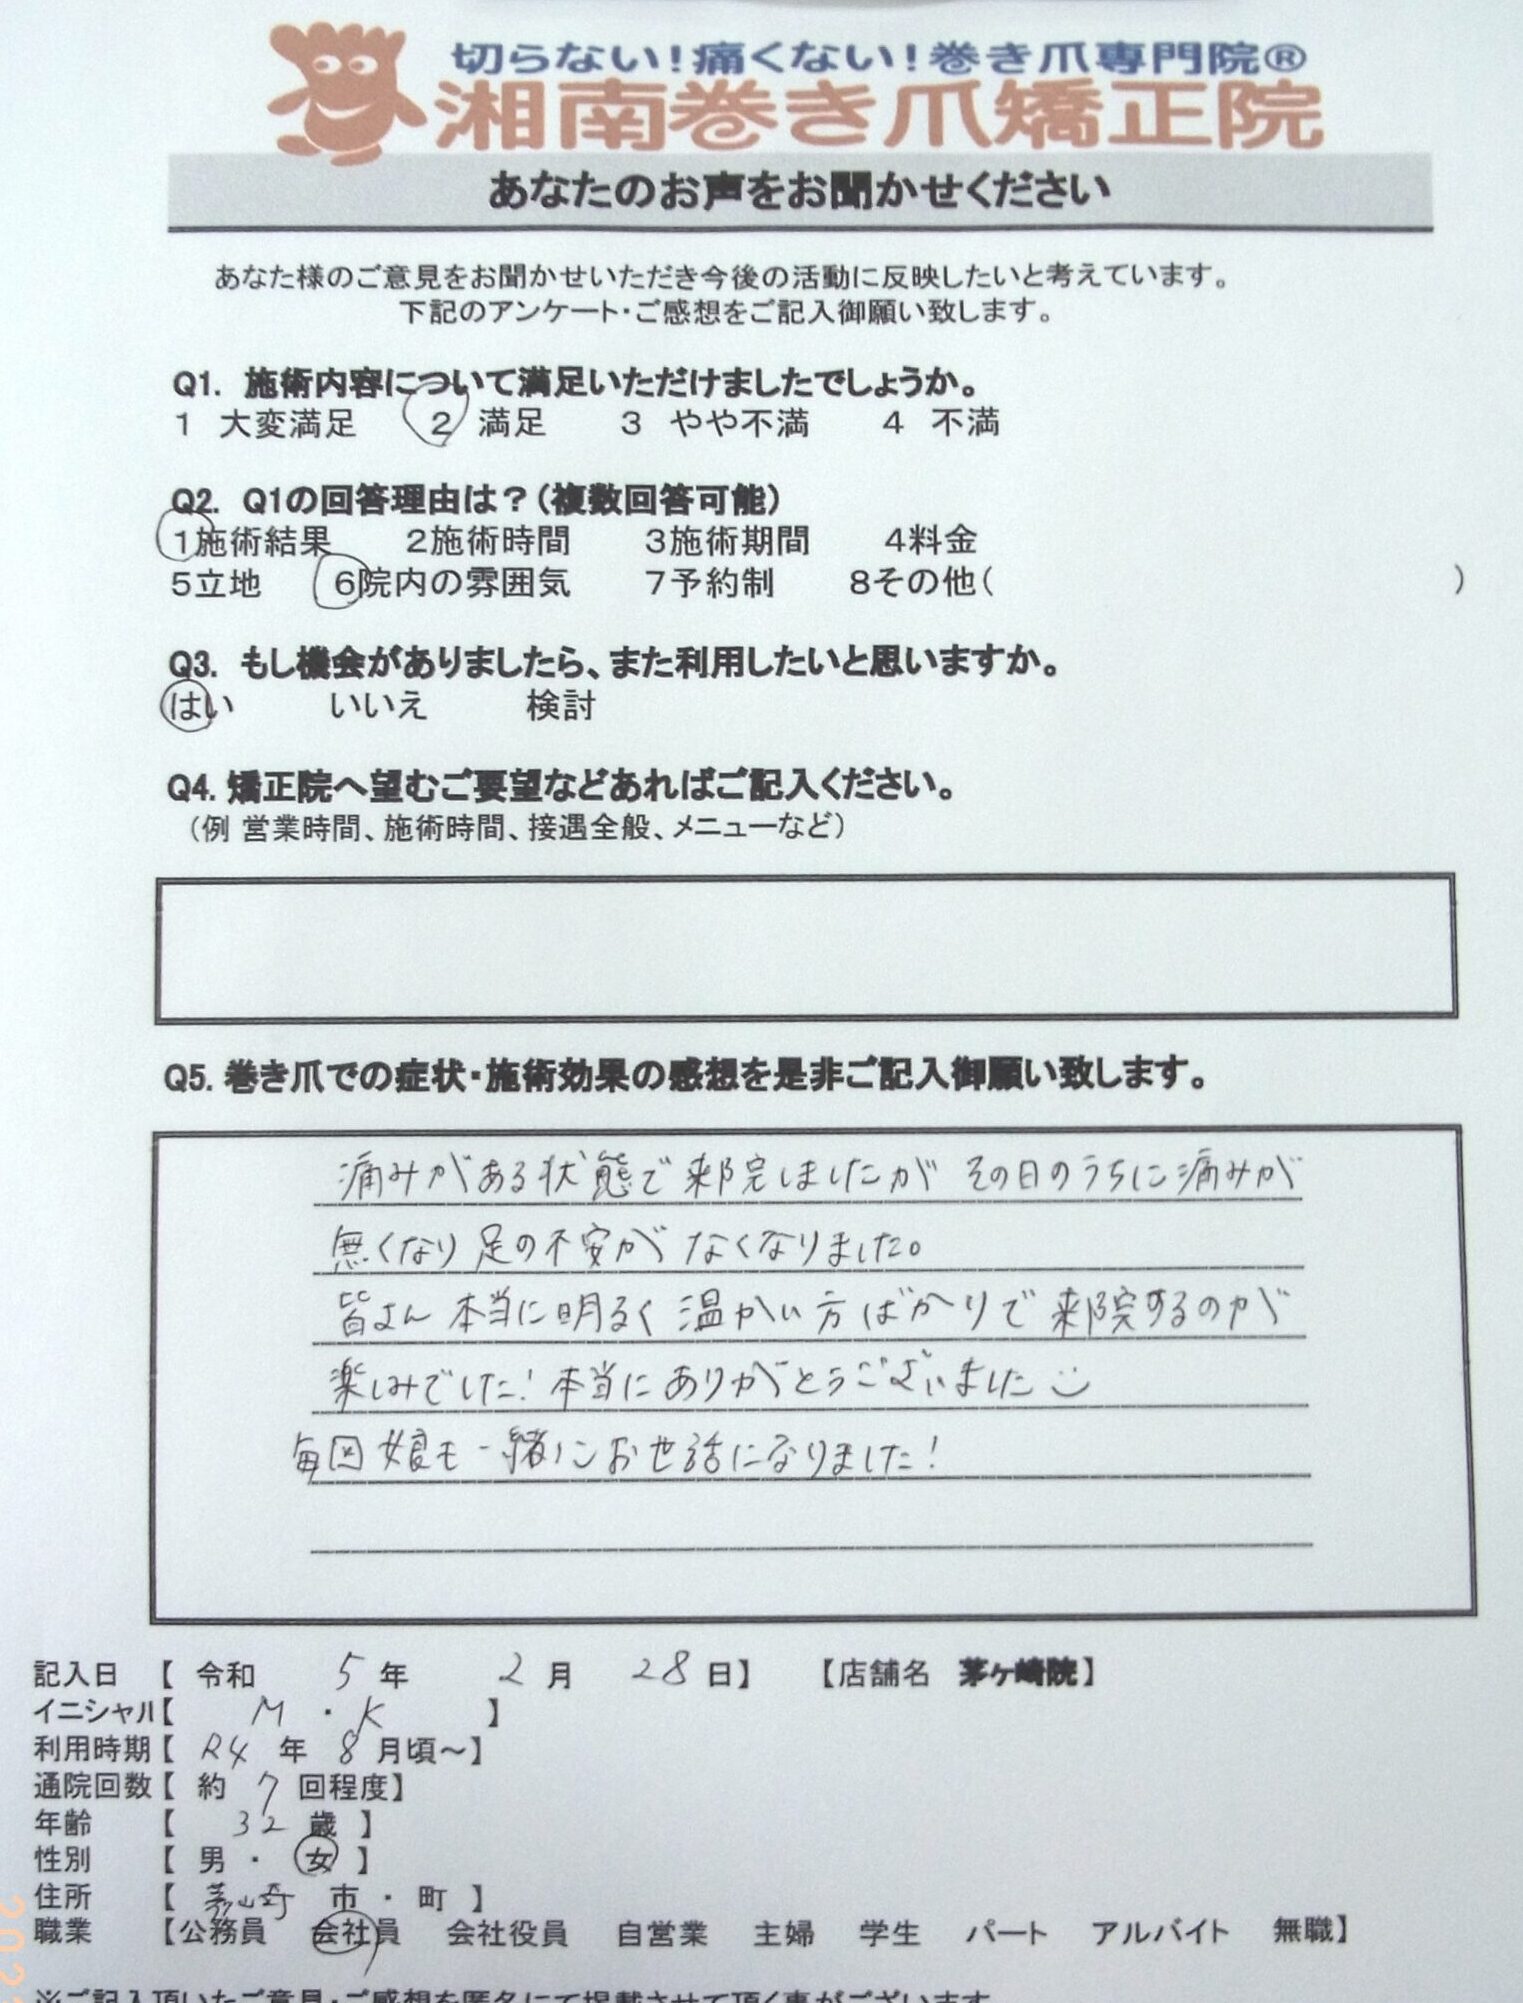 切らない!痛くない!巻き爪専門院®
湘南巻き爪矯正院
あなたのお声をお聞かせください
あなた様のご意見をお聞かせいただき今後の活動に反映したいと考えています。
下記のアンケート・ご感想をご記入御願い致します。
Q1. 施術内容について満足いただけましたでしょうか。
1 大変満足 2 満足 3 やや不満 4 不満
Q2. Q1の回答理由は？（複数回答可能）
1施術結果 2施術時間 3施術期間 4料金
5立地 6院内の雰囲気 7予約制 8その他( )
Q3. もし機会がありましたら、また利用したいと思いますか。
はい いいえ 検討
Q4. 矯正院へ望むご要望などあればご記入ください。
（例 営業時間、施術時間、接遇全般、メニューなど）
Q5. 巻き爪での症状・施術効果の感想を是非ご記入御願い致します。
痛みがある状態で来院しましたが その日のうちに痛みが
無くなり 足の不安が なくなりました。
皆さん 本当に明るく 温かい方ばかりで 来院するのが
楽しみでした! 本当にありがとうございました
毎回 娘も一緒にお世話になりました!
記入日 【 令和 5 年 2 月 28 日】 【店舗名 茅ヶ崎院】
イニシャル【 M ・ K 】
利用時期【 R4 年 8 月頃～】
通院回数【 約 7 回程度】
年齢 【 32 歳 】
性別 【 男 ・ 女 】
住所 【 茅ヶ崎 市 ・ 町 】
職業 【公務員 会社員 会社役員 自営業 主婦 学生 パート アルバイト 無職】
※ご記入頂いたご意見・ご感想を匿名にて掲載させて頂く事がございます